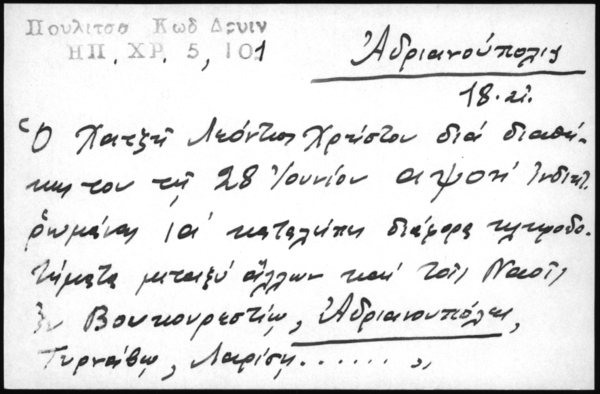 Πουλιτσα Κωδ Δρυιν
ΗΠ. ΧΡ. 5, 101
Ἀδριανούπολις
18. αι.
Ὁ Χατζῆ Λεόντιος Χρήστου διά διαθή-
κης του τῆς 28 Ἰουνίου αψοή ἰνδικτ.
ρωμάνας ια καταλείπει διάφορα κληροδο-
τήματα μεταξύ ἄλλων καί τοῖς Ναοῖς
ἐν Βουκουρεστίῳ, Ἀδριανουπόλει,
Τυρνάβῳ, Λαρίσῃ . . . . . . ,,